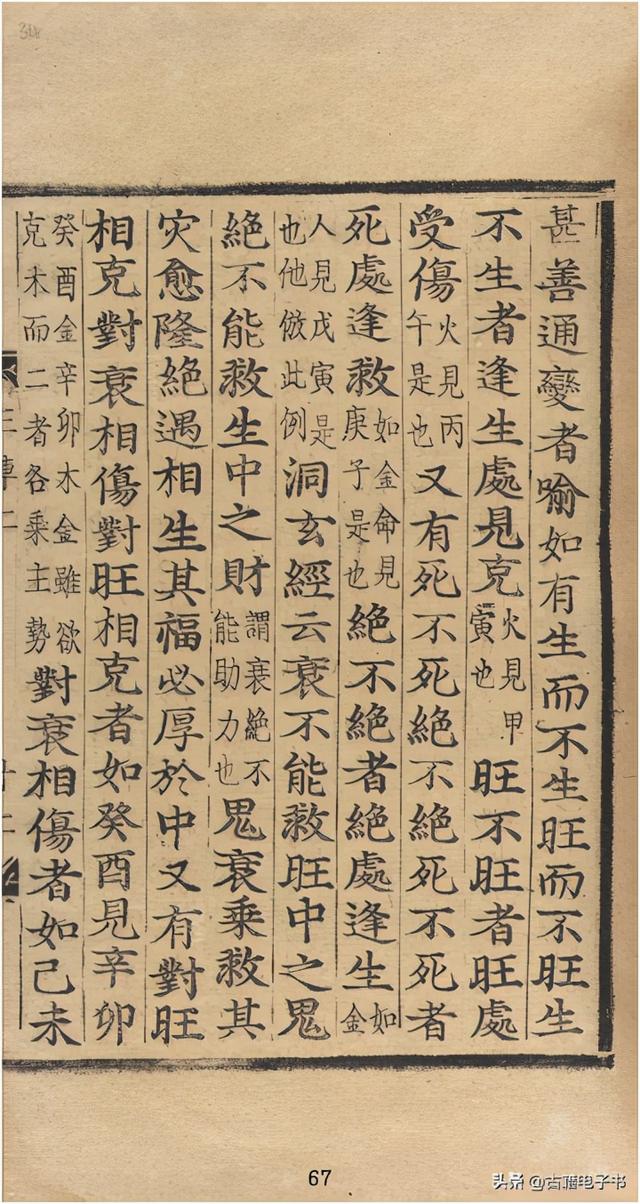 甚善通變者喻如有生而不生旺而不旺生
不生者逢生處見克火見甲寅也旺不旺者旺處
受傷火見丙午是也又有死不死絕不絕死不死者
死處逢救如金命見庚子是也絕不絕者絕處逢生如金
人見戊寅是也他倣此例洞玄經云衰不能救旺中之鬼
絕不能救生中之財謂衰絕不能助力也鬼衰乘救其
灾愈隆絕遇相生其福必厚於中又有對旺
相克對衰相傷對旺相克者如癸酉見辛卯
癸酉金辛卯木金雖欲克木而二者各乘主勢對衰相傷者如己未
67
头条 @古籍电子书